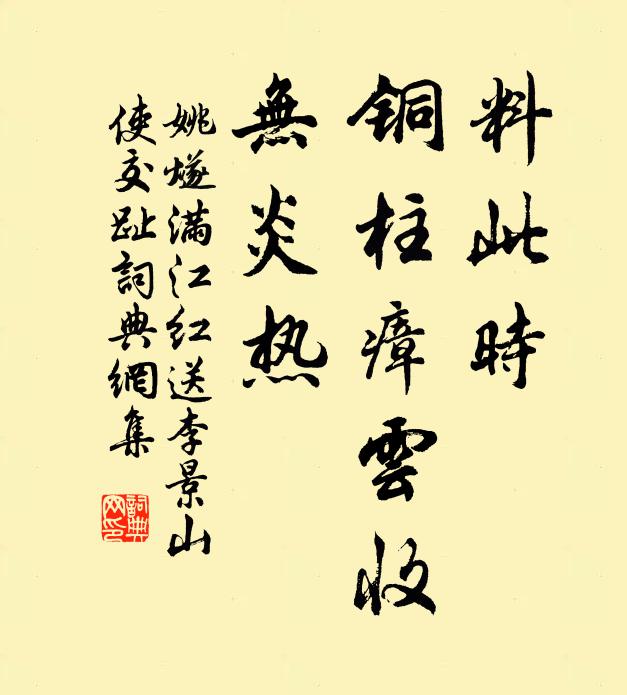 料此時
銅柱瘴雲收
無炎热
姚燧满江红送李景山
使交趾詞典網集
詞典網印